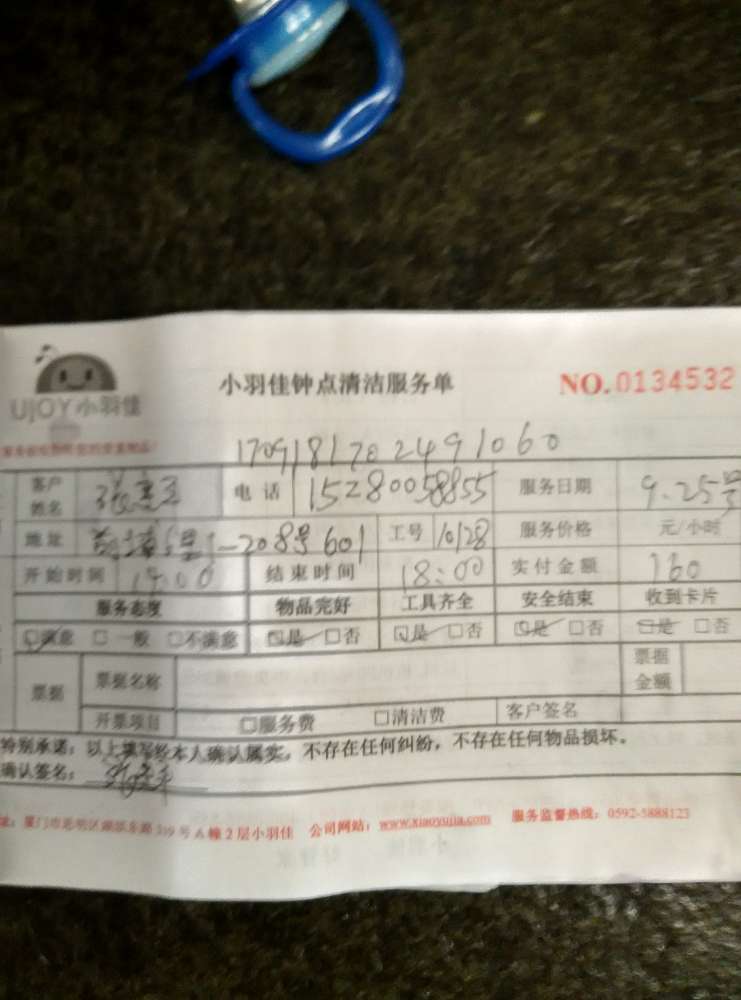 UJOY小羽佳
小羽佳钟点清洁服务单
NO.0134532
1709181702491060
客户姓名 电话 15280058855 服务日期 9.25号
地址 1-208号601 工号 10128 服务价格 元/小时
开始时间 结束时间 18:00 实付金额 160
服务态度 物品完好 工具齐全 安全结束 收到卡片
□满意 □一般 □不满意 □是 □否 □是 □否 □是 □否 □是 □否
票据 票据名称 票据金额
开票项目 □服务费 □清洁费 客户签名
特别承诺：以上填写经本人确认属实，不存在任何纠纷，不存在任何物品损坏。
确认签名：
址：厦门市思明区湖滨东路319号A幢2层小羽佳 公司网站：www.xiaoyujia.com 服务监督热线：0592-5888123